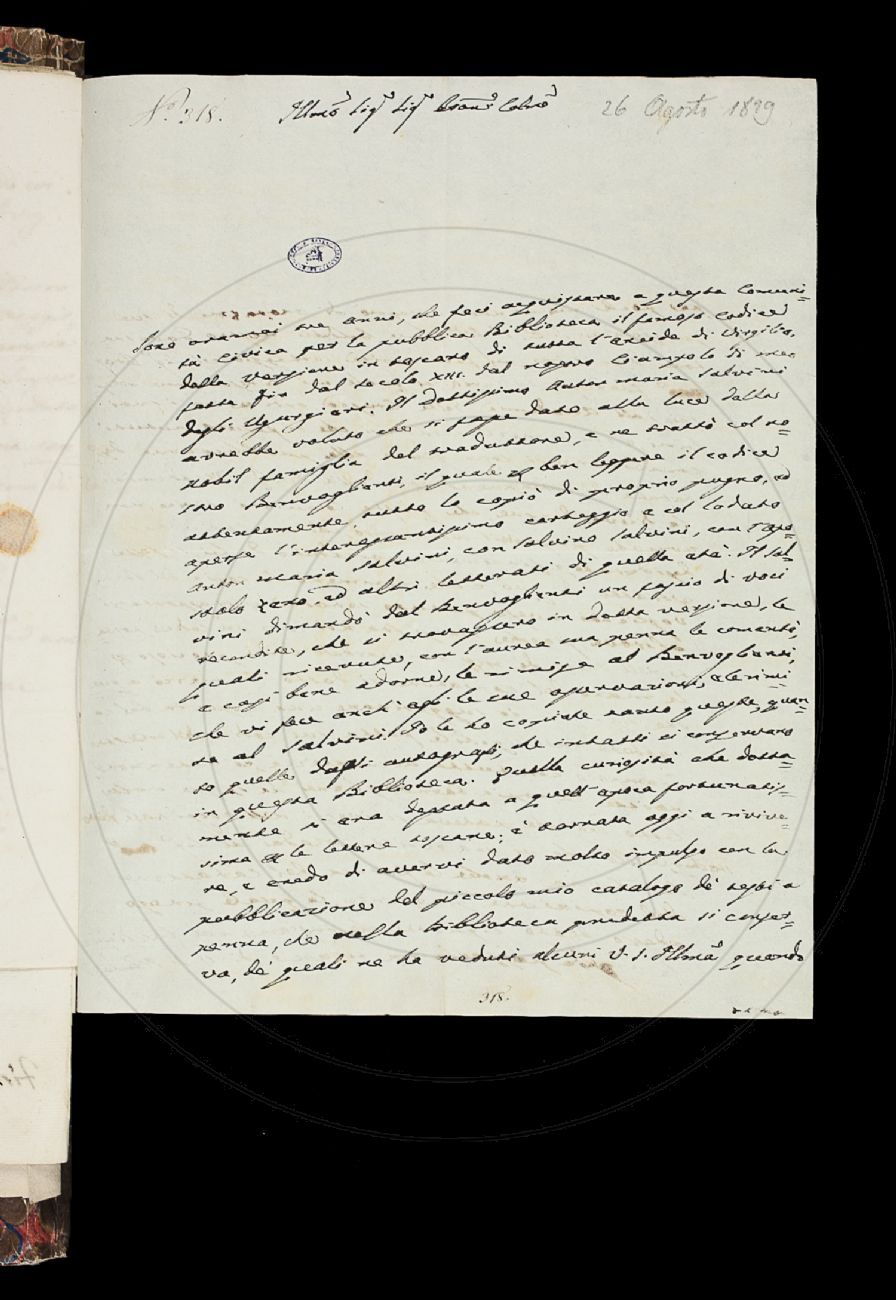 N.° 318.
Illmo Sigr Sigr Pron Colmo
26 Agosto 1829
Sono oramai tre anni, che feci acquistare a questa Comuni=
tà civica per la pubblica Biblioteca il famoso Codice
della versione in toscano di tutta l'Aeneide di Virgilio,
fatta fin dal secolo XIII. dal nostro Ciampolo di Meo
degli Ugurgieri. Il dottissimo Anton Maria Salvini
avrebbe voluto che si fosse dato alla luce dalla
nobil famiglia del traduttore, e ne trattò col no=
stro Benvoglienti, il quale ben leggere il codice
attentamente, tutto lo copiò di proprio pugno, ed
aperse l'interessantissimo carteggio e col lodato
Anton Maria Salvini, con Salvino Salvini, con l'Apo=
stolo Zeno, ed altri letterati di quella età. Il Sal=
vini dimandò dal Benvoglienti un saggio di voci
recondite, che si trovassero in detta versione, le
quali ricevute, con l'aurea sua penna le comentò,
e così bene adorne, le rimise al Benvoglienti,
che vi fece anch'egli le sue osservazioni, e le rimi=
se al Salvini. Io le ho copiate tanto queste, quan=
to quelle dagli autografi, che intatti si conservano
in questa Biblioteca. Quella curiosità che dotta=
mente si era destata a quell'epoca fortunatis=
sima le lettere toscane, è tornata oggi a rivive=
re, e credo di avervi dato molto impulso con la
pubblicazione del piccolo mio catalogo de' testi a
penna, che nella Biblioteca predetta si conser=
va, de' quali ne ha veduti alcuni V. S. Illma quando
318.